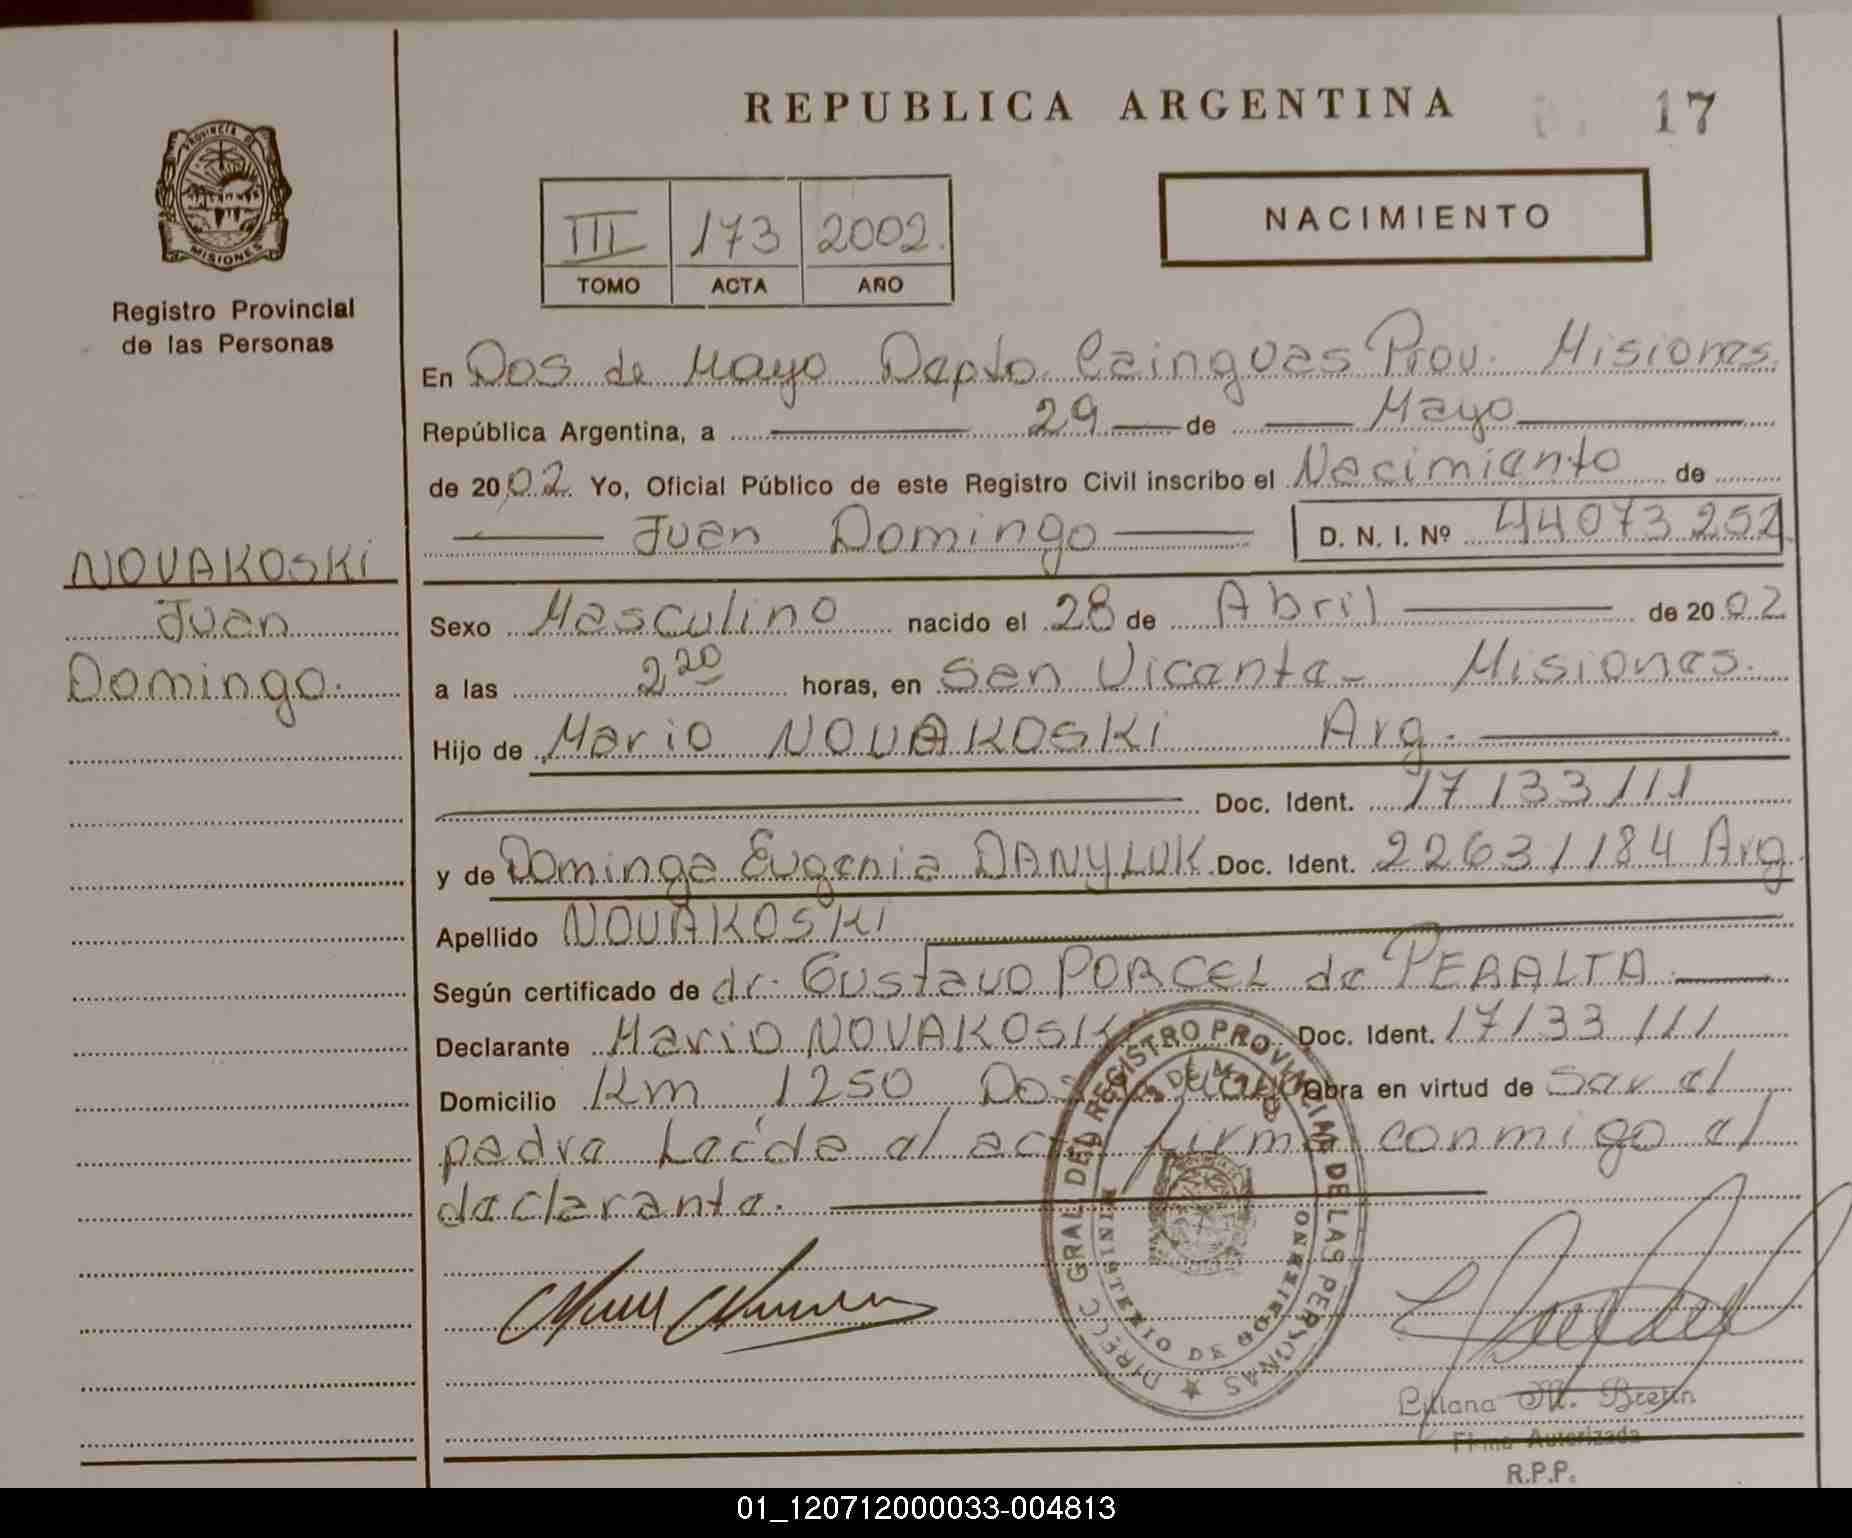 REPUBLICA ARGENTINA
17
PROVINCIA DE MISIONES
Registro Provincial
de las Personas
III 173 2002.
TOMO ACTA AÑO
NACIMIENTO
En Dos de Mayo Depto. Cainguas Prov. Misiones.
República Argentina, a 29 de Mayo
de 2002 Yo, Oficial Público de este Registro Civil inscribo el Nacimiento de
Juan Domingo D. N. I. Nº 44073252
NOVAKOSKI
Juan
Domingo.
Sexo Masculino nacido el 28 de Abril de 2002
a las 2 20 horas, en San Vicente - Misiones.
Hijo de Mario NOVAKOSKI Arg.
Doc. Ident. 17133111
y de Dominga Eugenia DANYLUK Doc. Ident. 22631184 Arg
Apellido NOVAKOSKI
Según certificado de dr. Gustavo PORCEL de PERALTA
Declarante Mario NOVAKOSKI Doc. Ident. 17133111
Domicilio Km 1250 Dos de Mayo Obra en virtud de ser el
padre Leída el acta firma conmigo el
declarante.
DIREC. GRAL DEL REGISTRO PROVINCIAL DE LAS PERSONAS
MINISTERIO DE GOBIERNO
Liliana M. Bretin
Firma Autorizada
R.P.P.
01_120712000033-004813